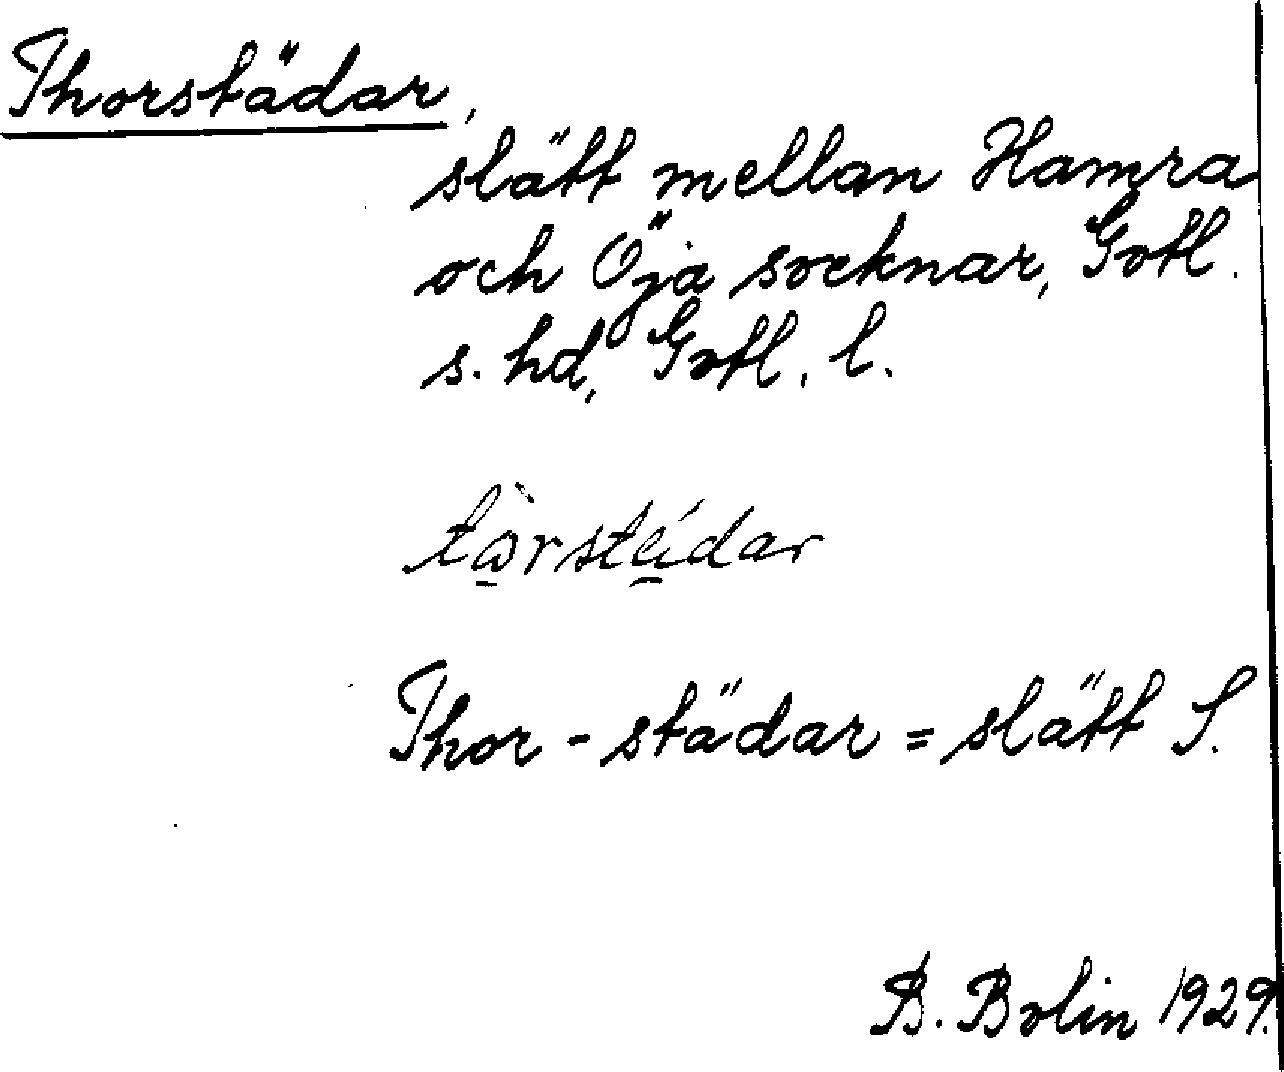 Thorstädar,
slätt mellan Hamra
och Öja socknar, Gotl.
s. hd, Gotl. l.
Thor - städar = slätt S.
B. Bolin 1929.